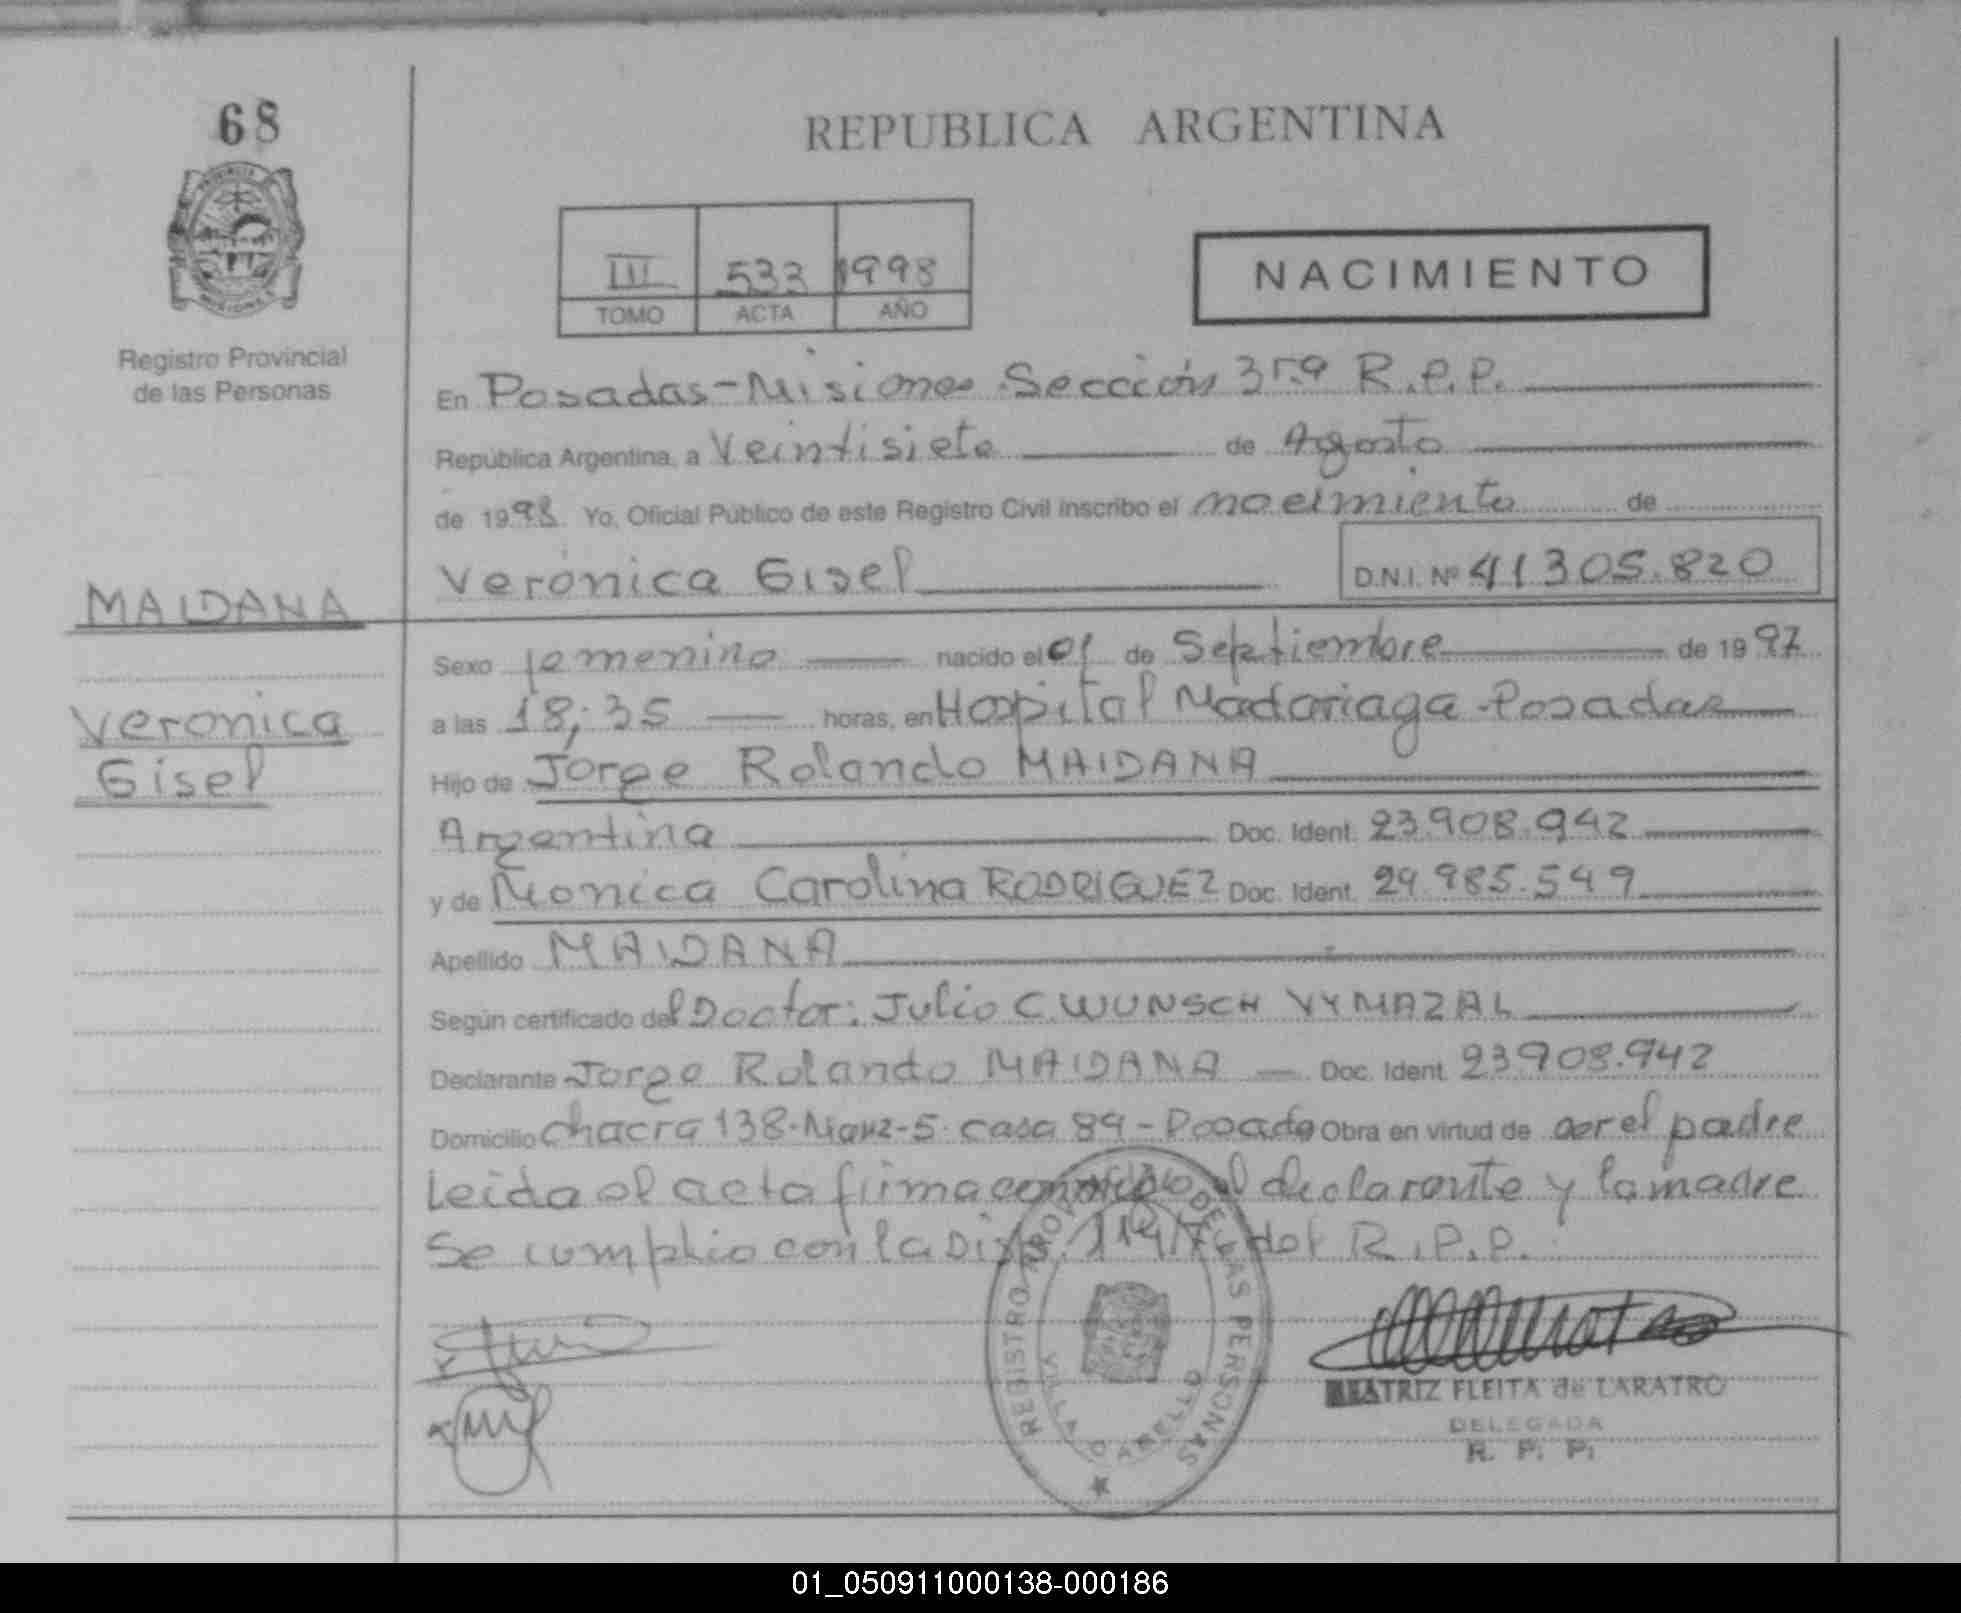 68
REPUBLICA ARGENTINA
III 533 1998
TOMO ACTA AÑO
NACIMIENTO
Registro Provincial
de las Personas
En Posadas-Misiones Sección 3ra R.P.P.
República Argentina, a Veintisiete de Agosto
de 1998 Yo, Oficial Público de este Registro Civil inscribo el nacimiento de
Verónica Gisel D.N.I. Nº 41305.820
MAIDANA
Veronica
Gisel
Sexo femenino nacido el 01 de Septiembre de 1997
a las 18;35 horas, en Hospital Madariaga-Posadas
Hijo de Jorge Rolando MAIDANA
Argentina Doc. Ident. 23.908.942
y de Monica Carolina RODRIGUEZ Doc. Ident. 24.985.549
Apellido MAIDANA
Según certificado del Doctor: Julio C. WUNSCH VYMAZAL
Declarante Jorge Rolando MAIDANA Doc. Ident. 23.908.942
Domicilio Chacra 138-Manz-5-casa 89-Posadas Obra en virtud de ser el padre
Leida el acta firma conmigo el declarante y la madre
Se cumplio con la Disp. del R.P.P.
REGISTRO PROVINCIAL DE LAS PERSONAS
VILLA
BEATRIZ FLEITA de LARATRO
DELEGADA
R. P. P.
01_050911000138-000186